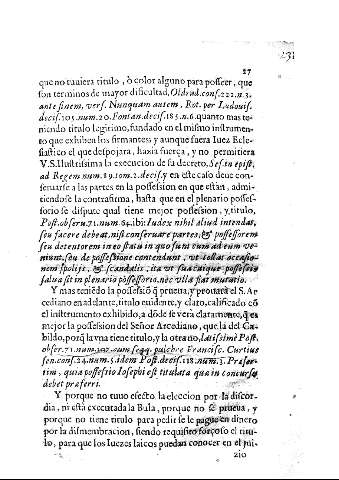 231
27
que no tuuiera titulo, ò color alguno para posseer, que
son terminos de mayor dificultad, Oldrad. cons. 222. n. 3.
ante finem, vers. Nunquam autem, Rot. per Ludouis.
decis. 105. num. 20. Fontan. decis. 185. n. 6. quanto mas te-
niendo titulo legitimo, fundado en el mismo instrumen-
to que exhiben los firmantes, y aunque fuera Iuez Ecle-
siastico el que despojara, haria fuerça, y no permitiera
V. S. Ilustissima la execucion de su decreto, Sesse en epist.
ad Regem num. 19. tom. 2. decis. y en este caso deue con-
seruarse a las partes en la possession en que estàn, admi-
tiendose la contrafirma, hasta que en el plenario posses-
sorio se dispute qual tiene mejor possession, y titulo,
Post. obseru. 71. num. 64. ibi: Iudex nihil aliud intendat,
seu facere debeat, nisi conseruare partes, & possessorem
seu detentorem in eo statu in quo sunt cum ad eum ve-
niunt, seu de possessione contendunt, vt tollat occasio-
nem spolijs, & scandalis, ita vt sua cuique possessio
salua sit in plenario possessorio, nec vlla fiat mutatio.
Y mas teniẽdo la possessiõ q̃ prueua, y protará el S. Ar-
cediano en adelante, titulo euidente, y claro, calificado cõ
el instrumento exhibido, a dõde se verà claramente, q̃ es
mejor la possession del Señor Arcediano, que la del Ca-
bildo, porq̃ la vna tiene titulo, y la otra no, latissimè Post.
obser. 71. num. 102. cum seqq. pulchrè Francisc. Curtius
sen. cons. 24. num. 5. idem Post. decis. 118. num. 3. Prefer-
tim, quia possessio Iosephi est titulata qua in concursu
debet praeferri.
Y porque no tuuo efecto la eleccion por la discor-
dia, ni està executada la Bula, porque no se prueua, y
porque no tiene titulo para pedir se le pague en dinero
por la dismembracion, siendo requisito forçoso el titu-
lo, para que los Iuezes laicos puedan conocer en el jui-
zio